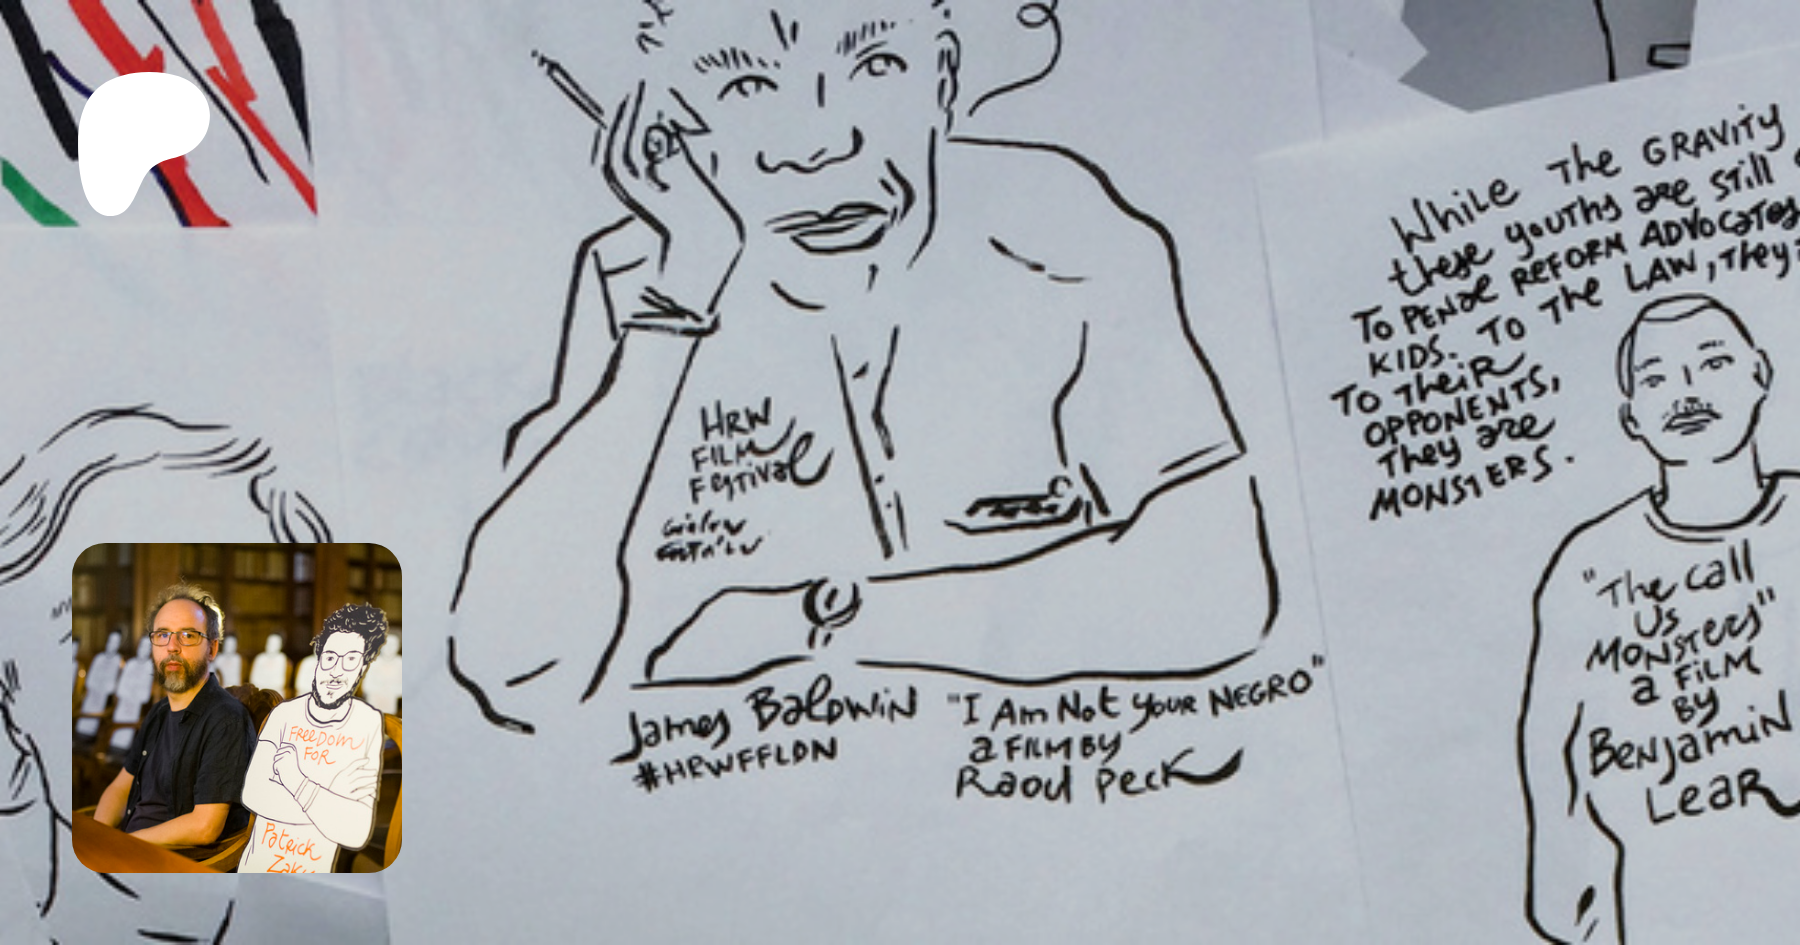 HRW
FILM
Festival
James Baldwin
#HRWFFLDN
"I Am Not Your NEGRO"
a FILM BY
Raoul Peck
While The GRAVITY
these youths are still
To PENal REFORM ADVOCATES
KIDS. To The LAW, They
To Their
OPPONENTS,
They are
MONSTERS.
"The Call
Us
MONSTERS"
a FILM
BY
Benjamin
LeaR
FREEDOM
FOR
Patrick
Zaky